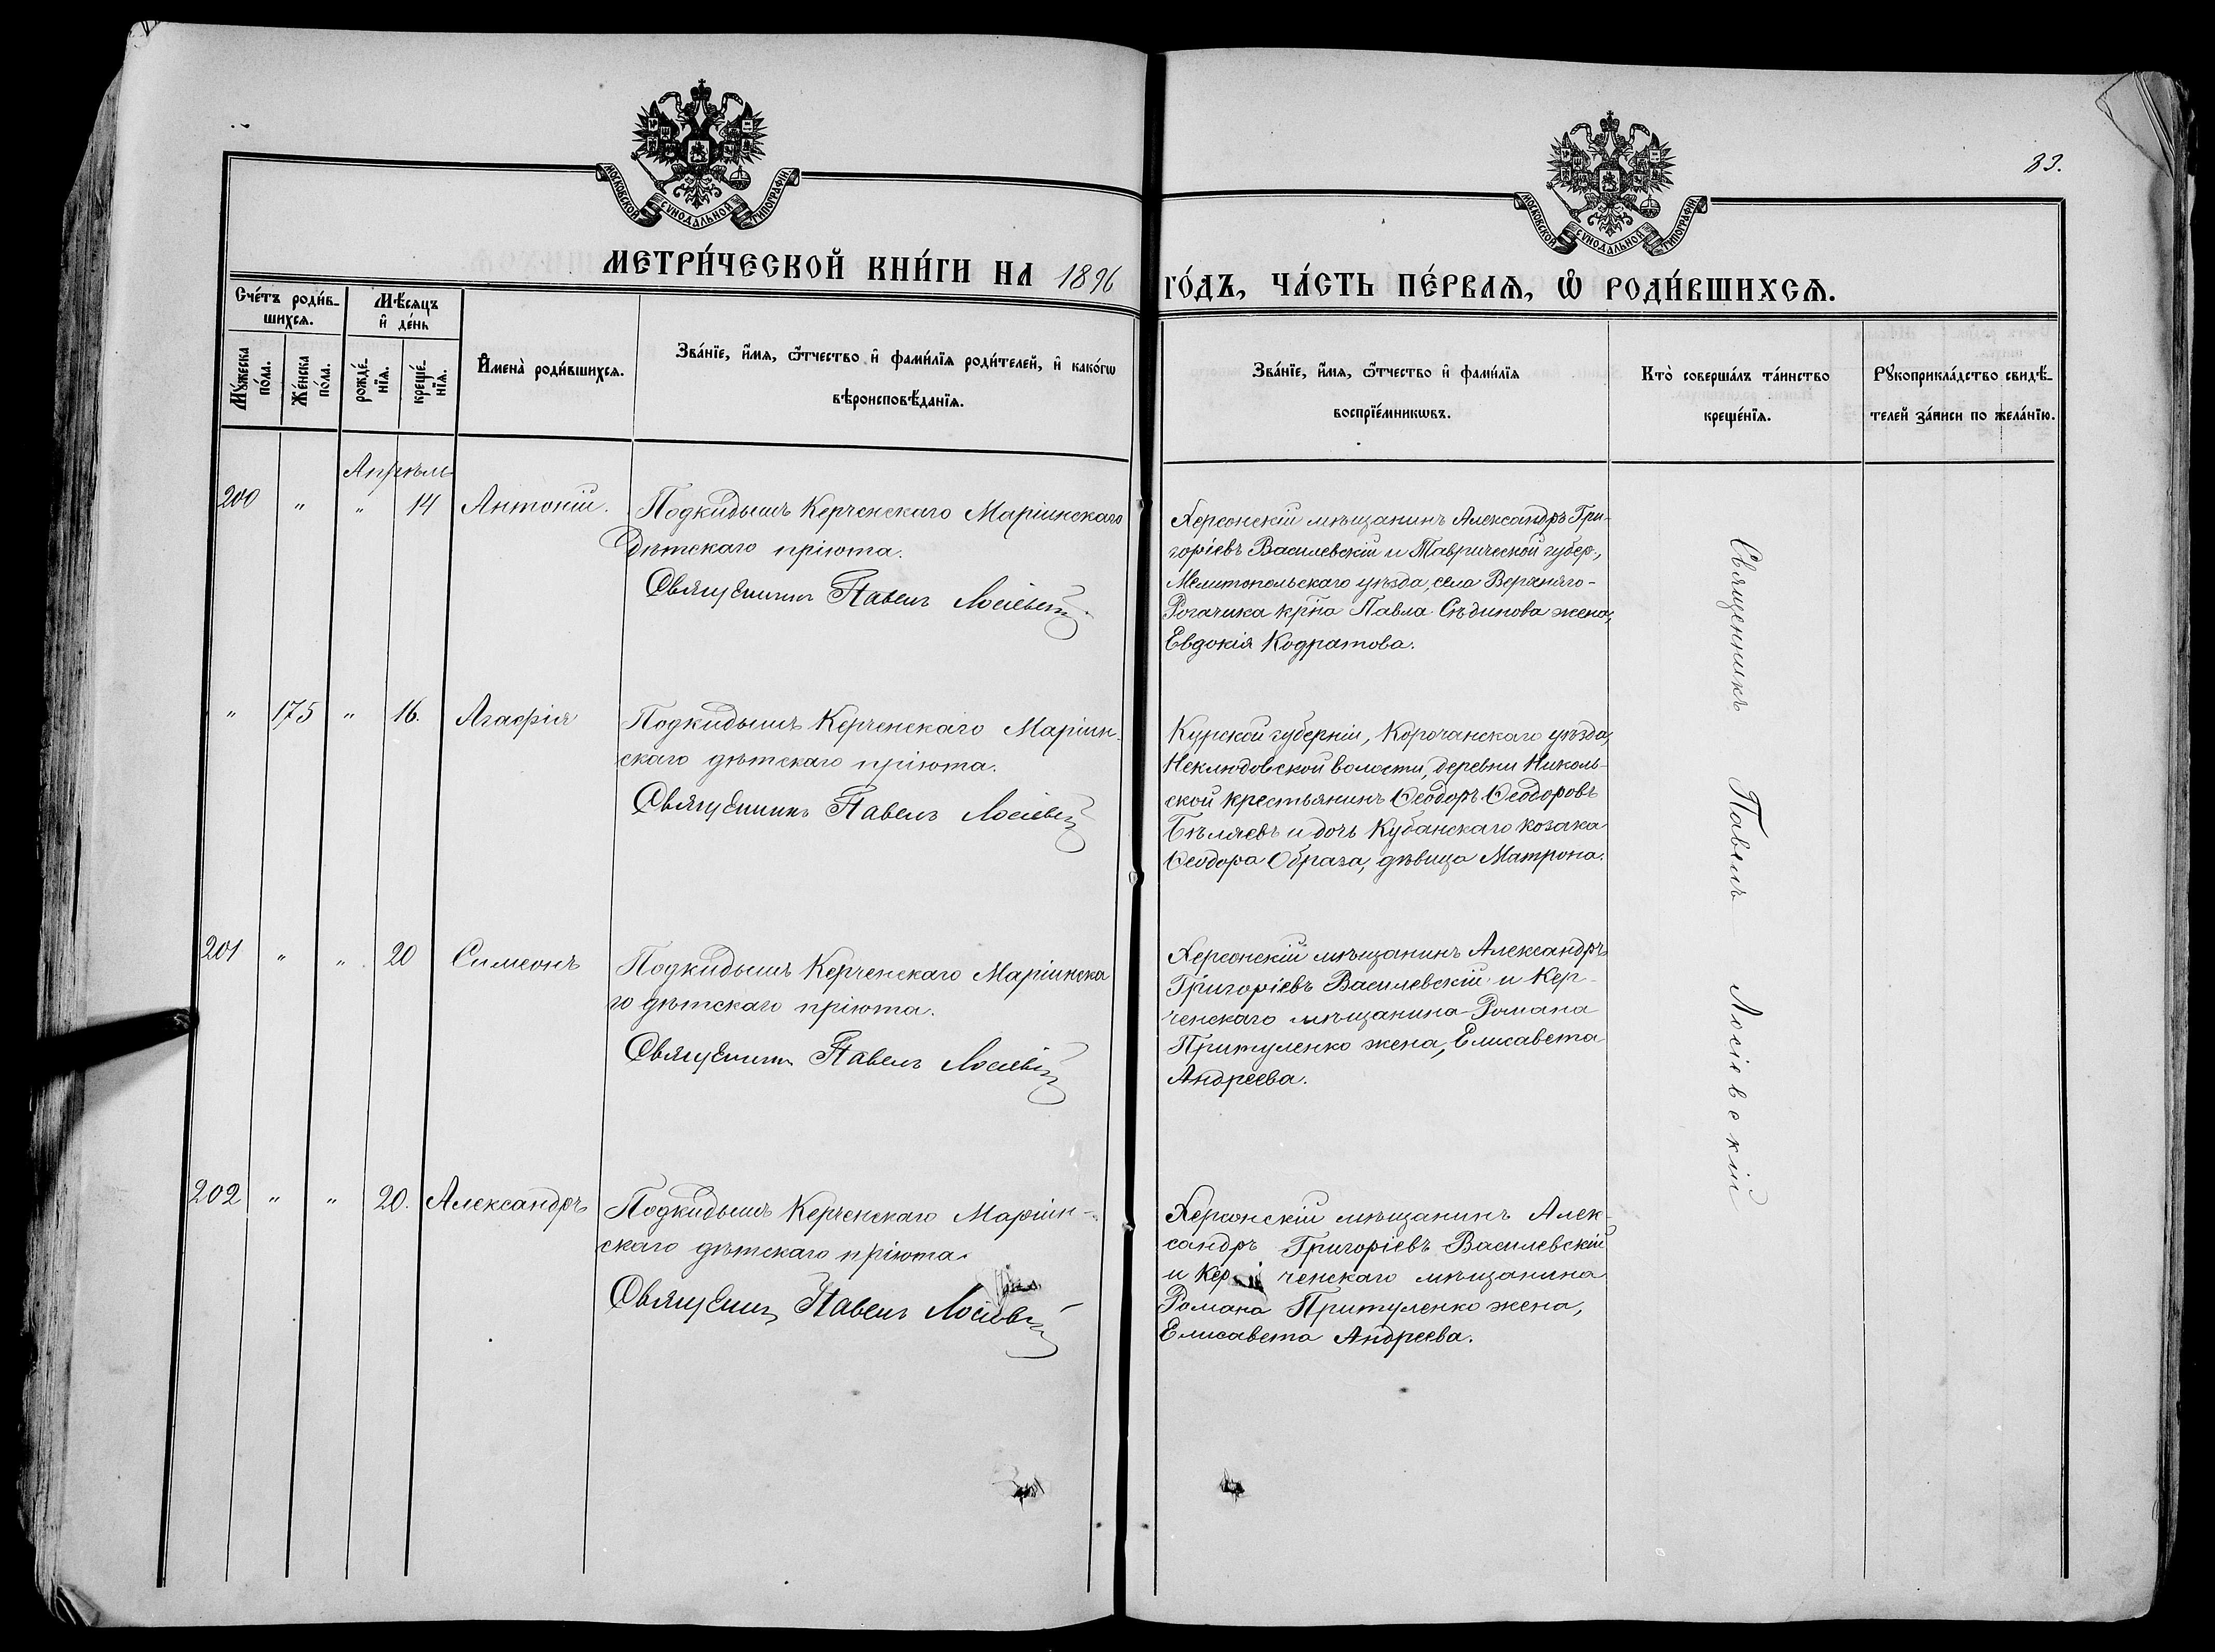 МОСКОВСКОЙ СѴНОДАЛЬНОЙ ТИПОГРАФІИ
МОСКОВСКОЙ СѴНОДАЛЬНОЙ ТИПОГРАФІИ
83.
МЕТРИ́ЧЕСКОЙ КНИ́ГИ НА 1896 ГО́ДЪ, ЧА́СТЬ ПЕ́РВАѦ, Ѽ РОДИ́ВШИХСѦ.
Сче́тъ роди́в-
шихсѧ.
Мѣ́сяцъ
и҆ де́нь
Мꙋ́жеска
по́ла.
Же́нска
по́ла.
рожде́-
нїѧ.
креще́-
нїѧ.
И҆мена̀ роди́вшихсѧ.
Зва́нїе, и҆́мѧ, ѻ҆́тчество и҆ фами́лїѧ роди́телей, и҆ како́гѡ
вѣроисповѣ́данїѧ.
Зва́нїе, и҆́мѧ, ѻ҆́тчество и҆ фами́лїѧ
воспрїе́мникѡвъ.
Кто̀ соверша́лъ та́инство
креще́нїѧ.
Рꙋкоприкла́дство свидѣ́-
телей за́писи по жела́нїю.
Апрѣль
200 " " 14 Антоній.
Подкидышъ Керченскаго Маріинскаго
дѣтскаго пріюта.
Священникъ Павелъ Лосіевскій
Херсонскій мѣщанинъ Александръ Гри-
горіевъ Василевскій и Таврической губер.,
Мелитопольскаго уѣзда, села Верхняго-
Рогачика кр҃на Павла Сѣдинова жена,
Евдокія Кодратова.
" 175 " 16. Агафія
Подкидышъ Керченскаго Маріин-
скаго дѣтскаго пріюта.
Священникъ Павелъ Лосіевскій
Курской губерніи, Корочанскаго уѣзда,
Неклюдовской волости, деревни Николь-
ской крестьянинъ Ѳеодоръ Ѳеодоровъ
Бѣляевъ и дочь Кубанскаго козака
Ѳеодора Образа, дѣвица Матрона.
201 " " 20 Симеонъ
Подкидышъ Керченскаго Маріинска
го дѣтскаго пріюта.
Священникъ Павелъ Лосіевскій
Херсонскій мѣщанинъ Александръ
Григоріевъ Василевскій и Кер-
ченскаго мѣщанина Романа
Притуленко жена, Елисавета
Андреева.
202 " " 20. Александръ
Подкидышъ Керченскаго Маріин-
скаго дѣтскаго пріюта.
Священникъ Павелъ Лосіевскій
Херсонскій мѣщанинъ Алек-
сандръ Григоріевъ Василевскій
и Кер ченскаго мѣщанина
Романа Притуленко жена,
Елисавета Андреева.
Священникъ Павелъ Лосіевскій